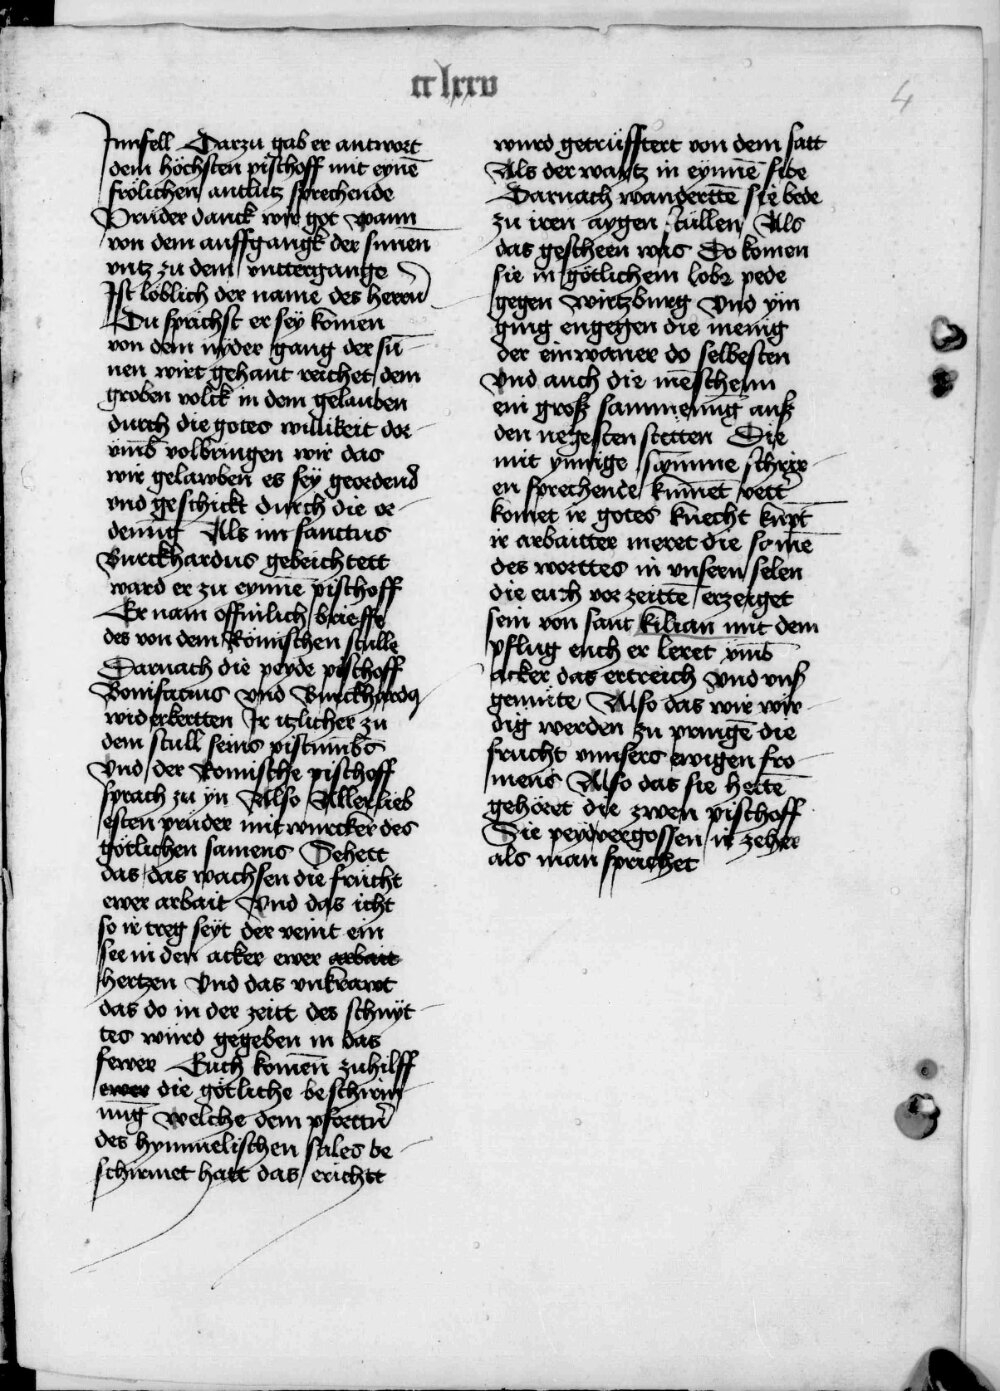 cclxxv
4
Innsell Darzu gab er antwort
dem höchsten pischoff mit eynē
frölichen antlütz sprechende
Brüder danck wir got wann
von dem auffgangk der sunnen
vntz zu dem vnttergange
Ist löblich der name des herrn
Du sprichst er sey komen
von dem nyder gang der sū
nen wirt gehant reichet dem
groben volck in dem gelauben
durch die gotes willikeit dor
vmb volbringen wir das
wir gelawben es sey geordend
vnd geschickt durch die or
denūg Als im sanctus
Burckhardus gebeichtett
ward er zu eynnē pischoff
Er nam offinlich brieffe
des von dem Römischen stulle
Darnach die peyde pischoff
Bonifacius vnd Burckhardꝰ
widerkertten Ir itzlicher zu
dem stull seins pistumbs
Vnd der Romische pischoff
sprach zu yn Also Allerlieb
esten prüder mitwurcker des
götlichen samens Sehett
das das wachsen die frücht
ewer arbait Vnd das icht
so ir treg seyt der veint ein
see in den acker ewer arbait
hertzen Vnd das vnkrawt
das do in der zeitt des schnyt
tes würd gegeben in das
fewer Euch komen zuhilff
ewer die götliche beschirm
ūng welche dem pfortn
des hymmelischen sales be
schirmet hatt das erichtt
wurd getrüfftert von dem satt
Als der waytz in eynnē side
Darnach wanderttē sie bede
zu iren aygen stüllen Als
das gescheen was Do komen
sie in götlichem lobe pede
gegen wirtzburg Vnd yin
ging engegen die menig
der einwaner do selbesten
Vnd auch die mēschenn
ein groß sammenūg auß
den negesten stetten Die
mit ynnige stymme schrir
en sprechende kūmet vettr
komet ir gotes knecht kūpt
ir arbaitter meret die somē
des worttes in vnsern selen
die euch vor zeittē erzeiget
sein von sant kilian mit dem
pflug euch er leret vmb
acker das ertreich vnd vnß
gemüte Also das wir wir
dig werden zu prāngē die
frücht vnnsers ewigen fro
mens Also das sie hettē
gehöret die zwen pischoff
Die peyd vergossen ir zeher
als man sprichet